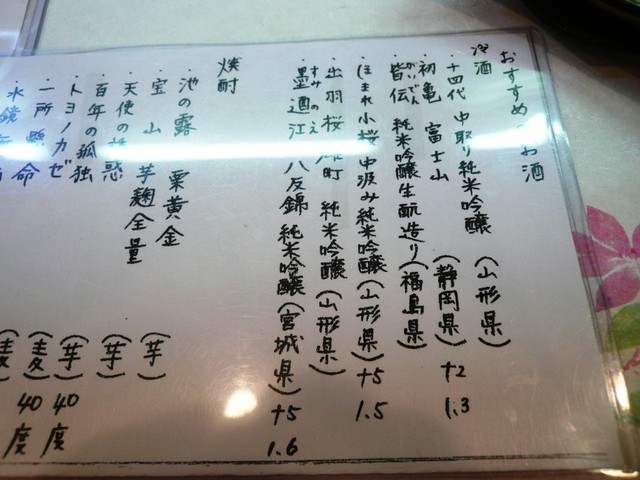 おすすめ お酒
冷酒
・十四代 中取り純米吟醸 (山形県)
・初亀 富士山 (静岡県) +2 1.3
がいでん
・皆伝 純米吟醸生酛造り (福島県)
・ほまれ小桜 中汲み純米吟醸 (山形県) +5 1.5
・出羽桜 雄町 純米吟醸 (山形県)
すみのえ
・墨廼江 八反錦 純米吟醸 (宮城県) +5 1.6
焼酎
・池の露 栗黄金
・宝山 芋麹全量 (芋)
・天使の誘惑 (芋)
・百年の孤独
・トヨノカゼ (芋) 40度
・一所懸命 (麦) 40度
・水鏡無 (麦)